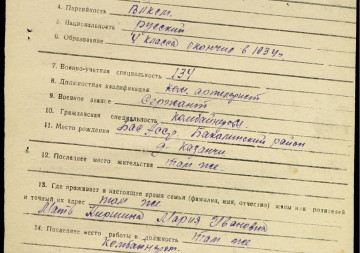 4. Партийность ВЛКСМ.
5. Национальность русский
6. Образование 4 класса окончил в 1934 г.
7. Военно-учетная специальность 134
8. Должностная квалификация ком. артиллерист
9. Военное звание Сержант
10. Гражданская специальность Комбайнер.
11. Место рождения Баш АССР. Бакалинский район
д. Казанчи
12. Последнее место жительства там же
13. Где проживает в настоящее время семья (фамилия, имя, отчество) жены или родителей
и точный их адрес там же
Мать Мария Ивановна
14. Последнее место работы и должность Там же
Комбайнер.